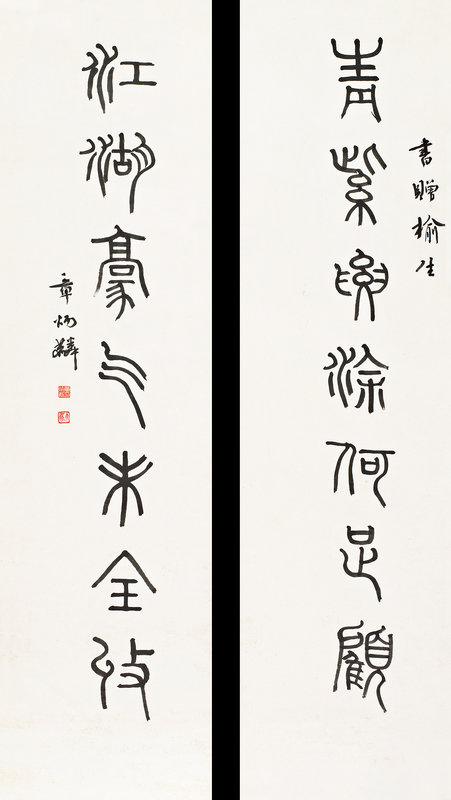 書贈榆生
青紫涂何足顧
江湖豪气未全收
章炳麟